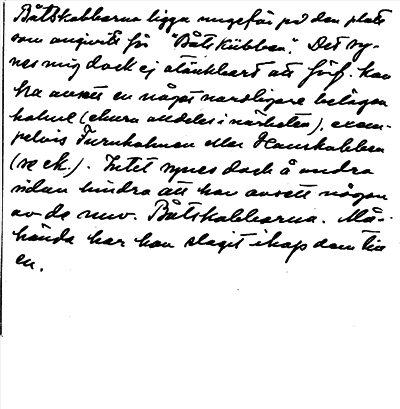 Båtskobbarna ligga ungefär på den plats
som angivits för "Båtskübben". Det sy-
nes mig dock ej otänkbart att förf. kan
ha avsett en något nordligare belägen
holme (ehuru alldeles i närheten), exem-
pelvis Furuholmen eller
(se ek.). Intet synes dock å andra
sidan hindra att han avsett någon
av de nuv. Båtskobbarna. Må-
hända har han slagit ihop dem till
en.